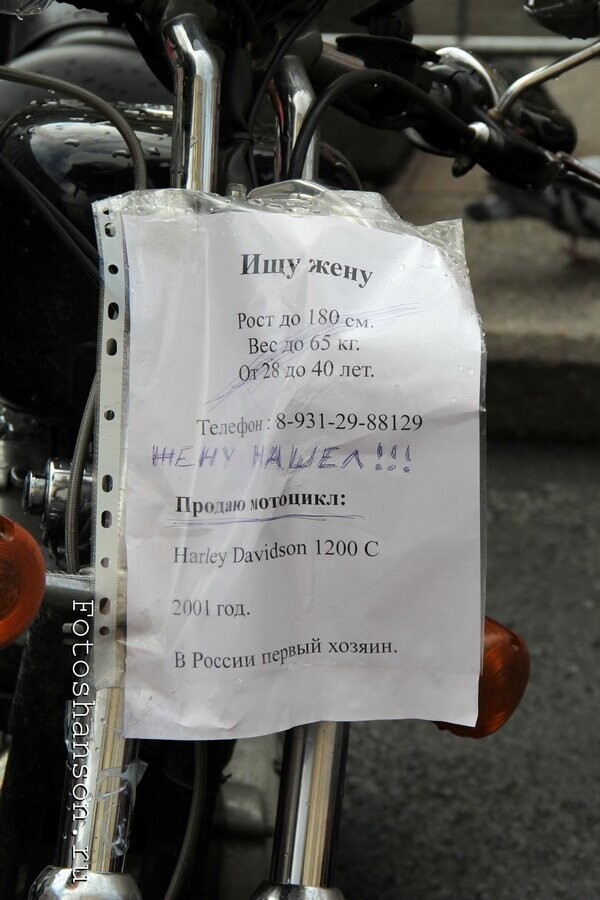 Ищу жену
Рост до 180 см.
Вес до 65 кг.
От 28 до 40 лет.
Телефон : 8-931-29-88129
ЖЕНУ НАШЕЛ!!!
Продаю мотоцикл:
Harley Davidson 1200 C
2001 год.
В России первый хозяин.
Fotoshanson.ru